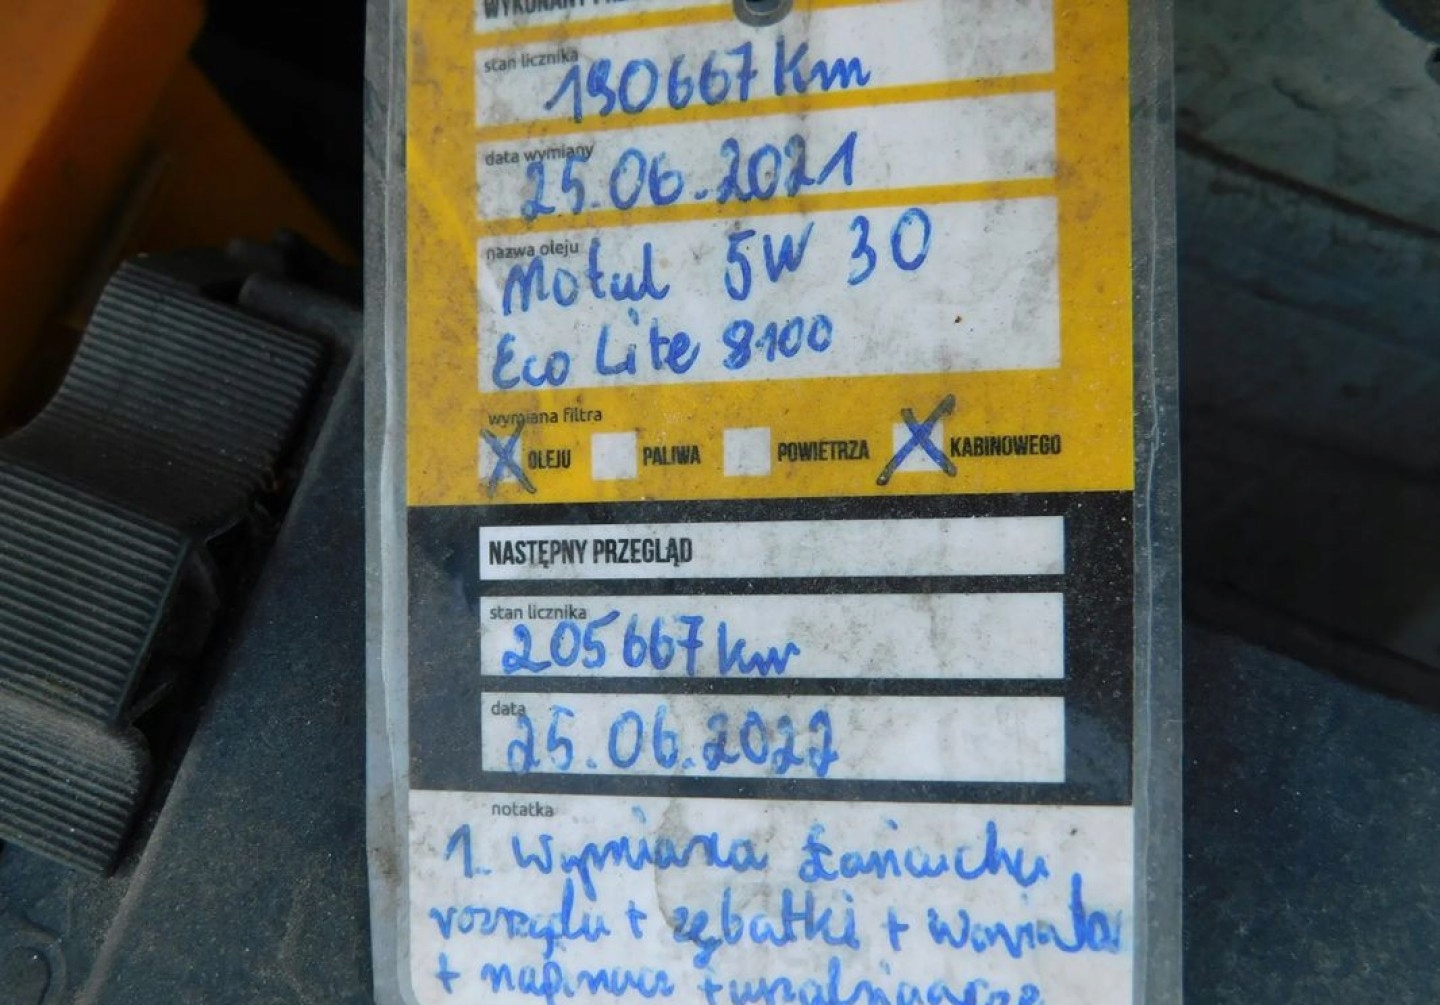 WYKONANY
stan licznika
190667 Km
data wymiany
25.06.2021
nazwa oleju
Motul 5W 30
Eco Lite 8100
wymiana filtra
X OLEJU PALIWA POWIETRZA X KABINOWEGO
NASTĘPNY PRZEGLĄD
stan licznika
205667 km
data
25.06.2022
notatka
1. Wymiana Łańcucha
rozrządu + zębatki +
+ napinacz +